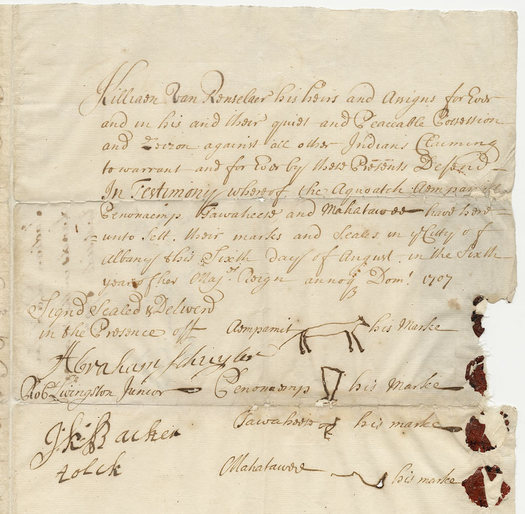 Killiaen Van Renselaer his heirs and Assigns for Ever
and in his and their quiet and Peaceable Possession
and against all other Indians Claiming
to warrant and for Ever by these Presents Defend
In Testimony whereof the
Penonaemp Tawaheese and Mahatawee have here
unto Sett their marks and Seales in ye Citty of
Albany this Sixth day of August in the Sixth
year of her Majts Reign annoq Domi 1707
Signd Sealed & Deliverd
in the Presence off
Aempamit his Marke
Abraham Schuyler
Robt Livingston Junior
Penonaemp his Marke
Tawaheese his marke
Mahatawee his marke